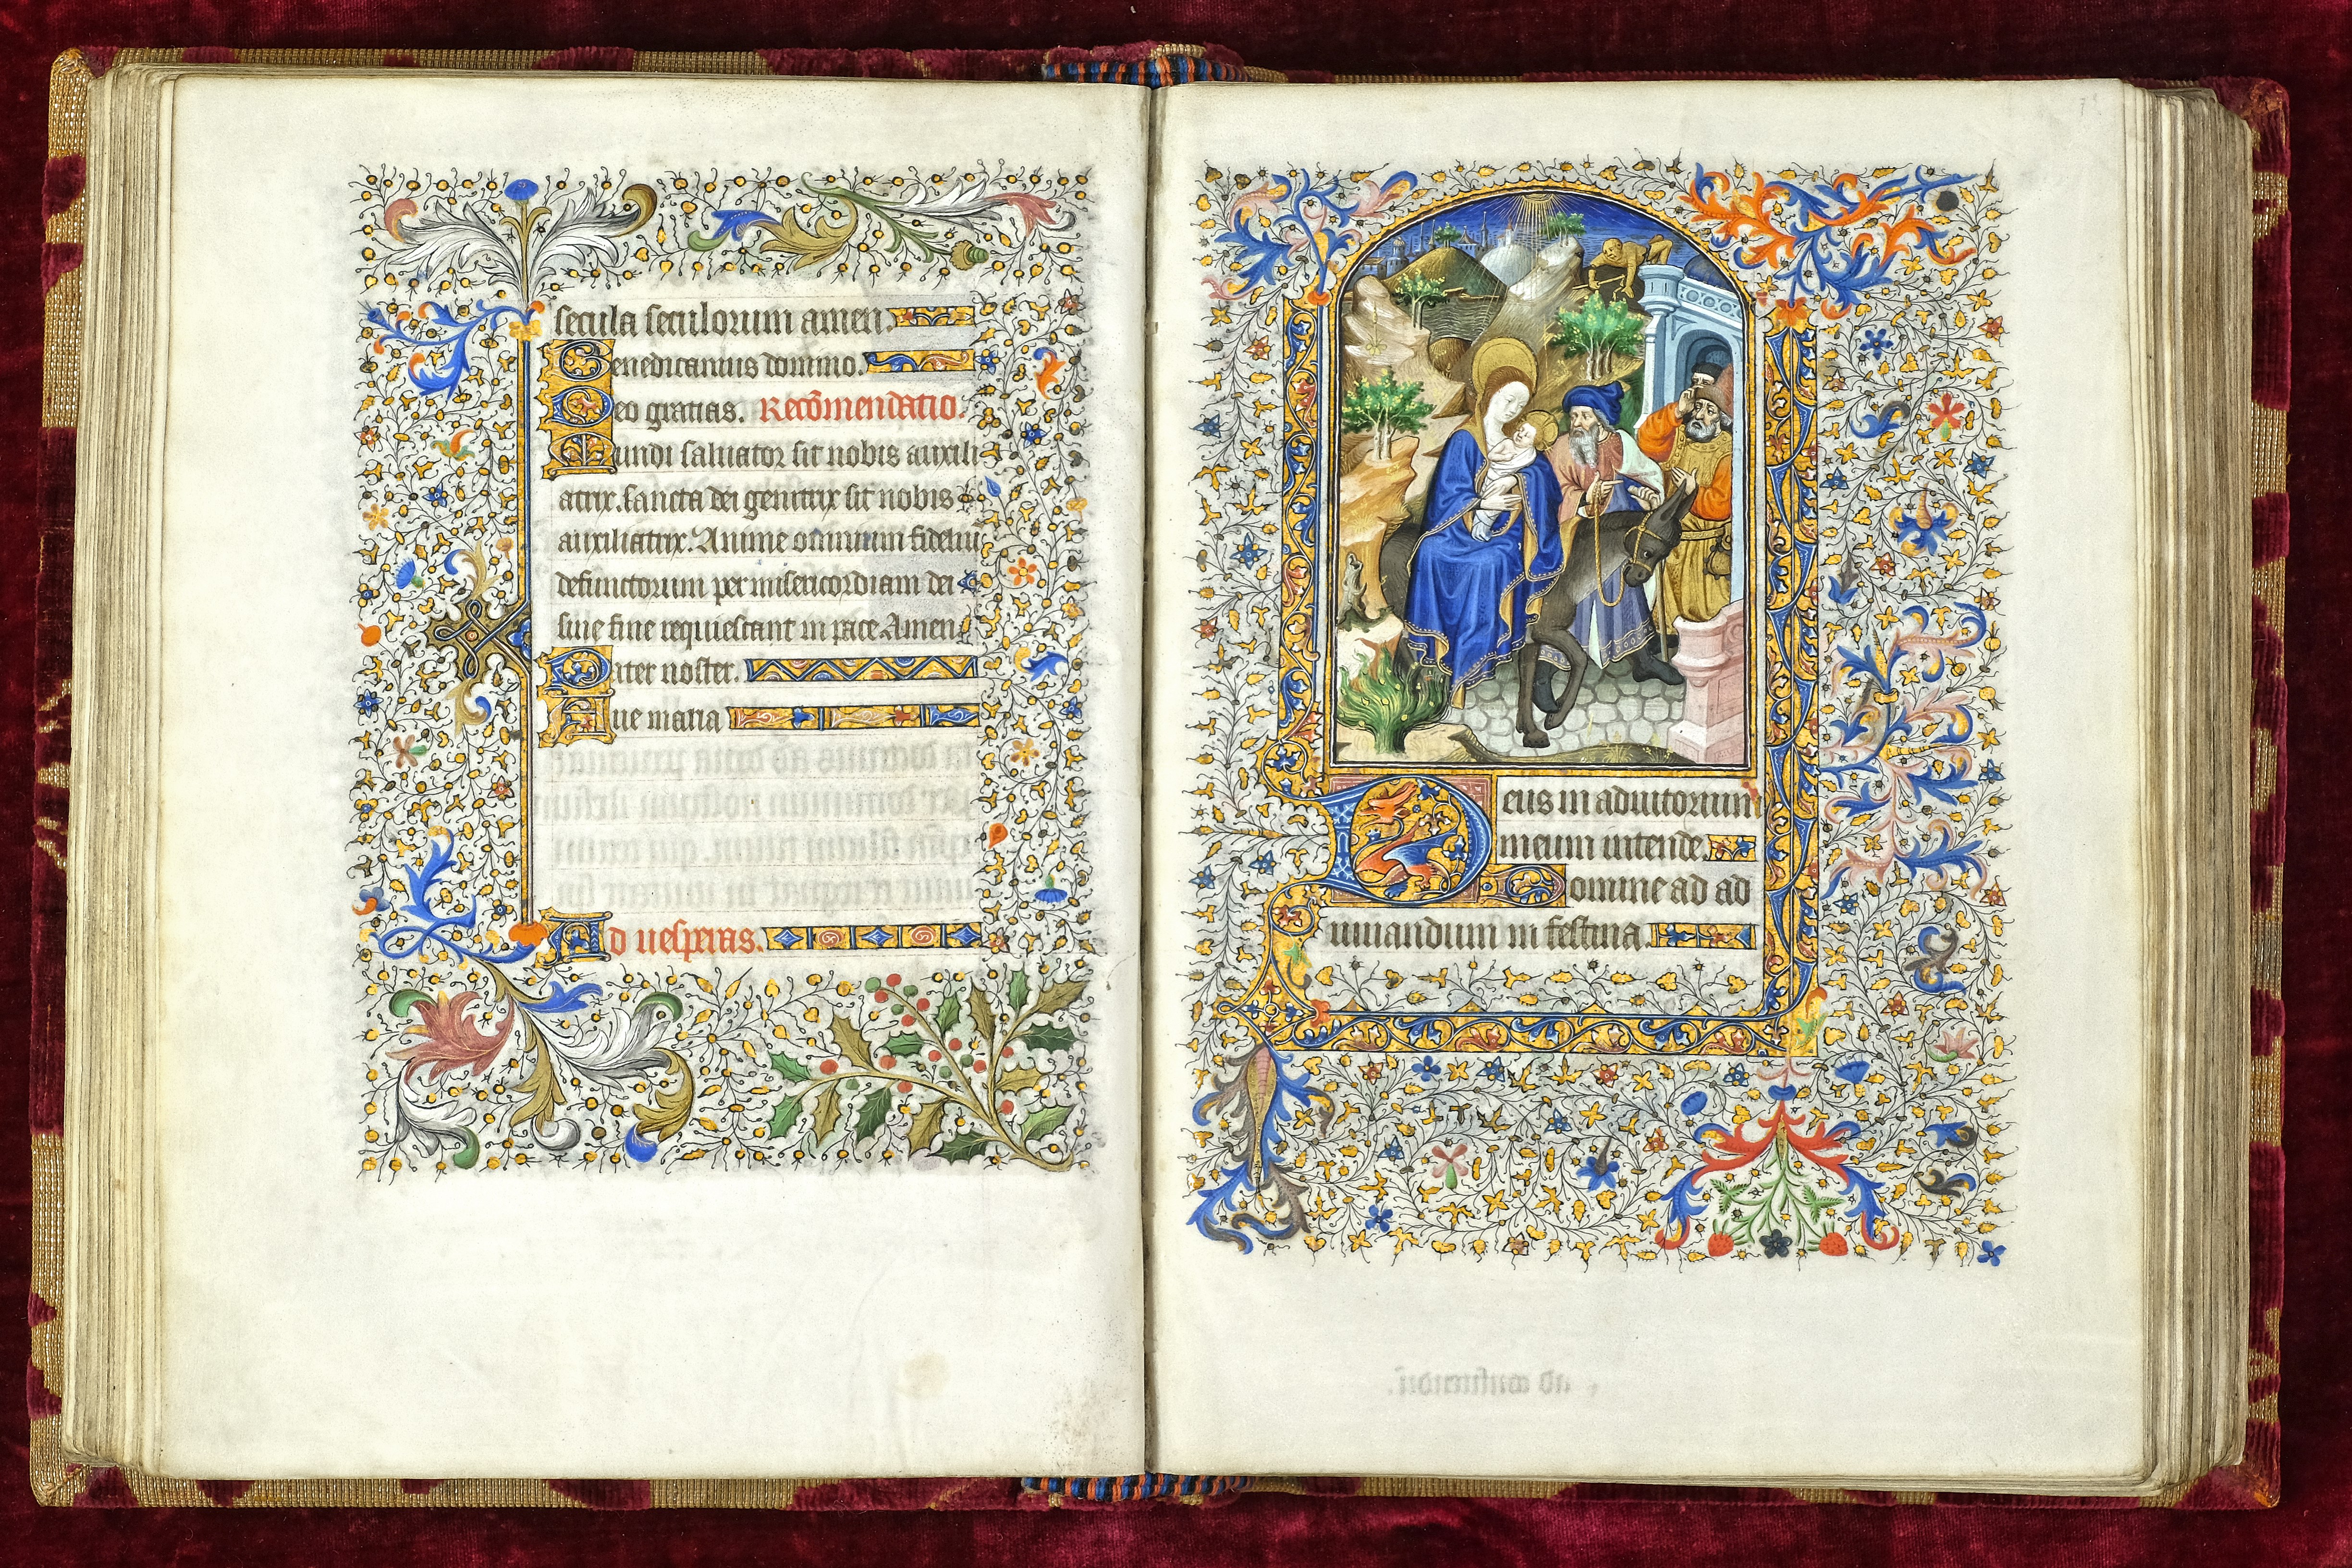 secula seculorum amen.
Benedicamus domino.
Deo gratias. Recōmendatio.
Mundi saluator sit nobis auxili
atrix. sancta dei genitrix sit nobis
auxiliatrix. Anime omnium fideliū
defunctorum per misericordiam dei
sine fine requiescant in pace Amen.
Pater noster.
Aue maria
Ad uesperas.
Deus in adiutorium
meum intende.
Domine ad ad
iuuandum in festina.